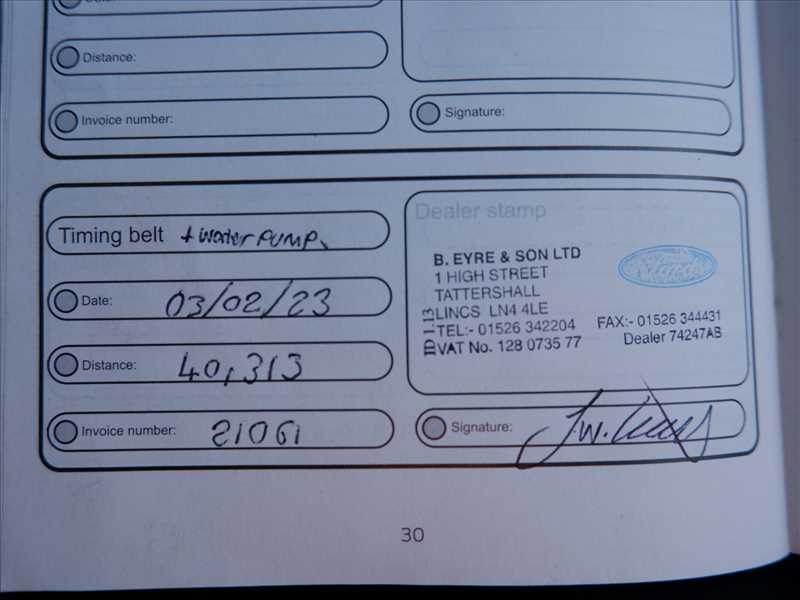 Distance:
Invoice number:
Signature:
Timing belt + water PUMP
Dealer stamp
Date: 03/02/23
B. EYRE & SON LTD
1 HIGH STREET
TATTERSHALL
LINCS LN4 4LE
TEL:- 01526 342204 FAX:- 01526 344431
VAT No. 128 0735 77 Dealer 74247AB
ID 1-13
Distance: 40,313
Invoice number: 21061
Signature:
30